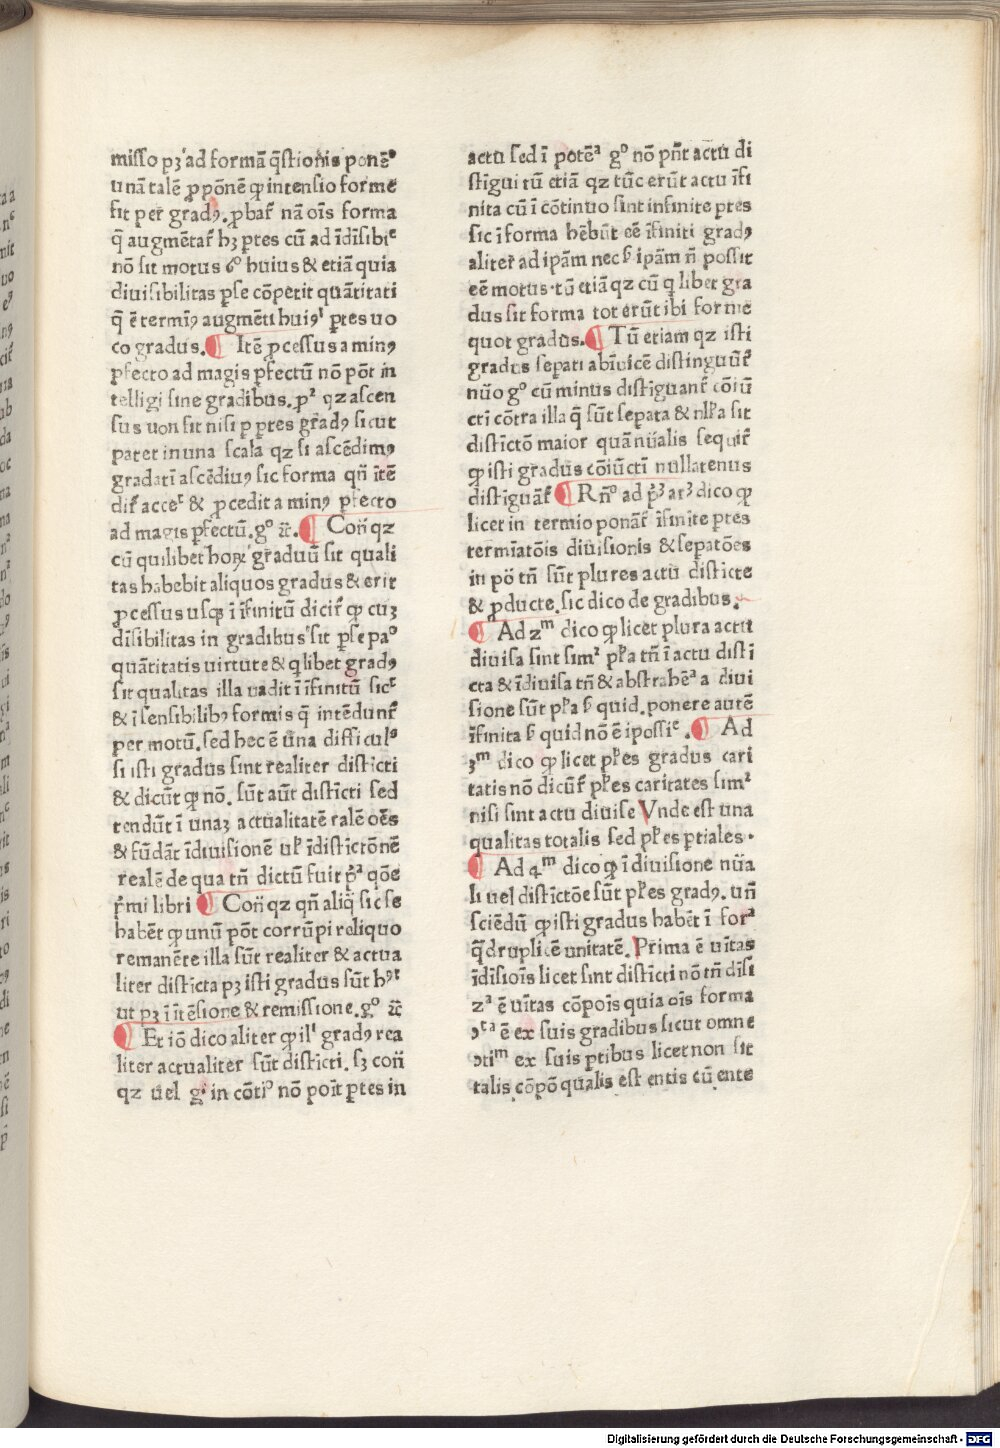 misso pꝫ ad formā q̄stionis ponēᵒ
unā talē ꝓpōnē ꝙ intensio forme
fit per gradꝯ. ꝓbat̃ nā oīs forma
q̄ augmētat̃ hꝫ ptes cū ad īdīsibiᵉ
nō sit motus 6ᵒ huius & etiā quia
diuisibilitas ꝑse cōpetit quātitati
q̄ ē termīꝯ augmēti huiꝯᵗ ꝑtes uo
co gradus. ¶ Itē ꝓcessus a minꝯ
ꝑfecto ad magis ꝑfectū nō pōt in
telligi sine gradibus. pᵃ qz ascen
sus uon sit nisi ꝑ ꝑtes gradꝯ sicut
patet in una scala qz si ascēdimꝯ
gradatī ascēdiuꝯ sic forma qn̄ ītē
dit̃ acceᵗ & ꝓcedit a minꝯ ꝑfecto
ad magis ꝑfectū. gᵒ ⁊c̄. ¶ Con̄ qz
cū quilibet hoꝝ graduū sit quali
tas habebit aliquos gradus & erit
ꝓcessus usqꝫ ī īfinitū dicit̃ ꝙ cuꝫ
dīsibilitas in gradibus sit ꝑse paᵒ
quātitatis uirtute & qlibet gradꝯ
sit qualitas illa uadit ī īfinitū sicᵗ
& ī sensibilibꝯ formis q̄ intēdunt̃
per motū. sed hec ē una difficulˢ
si isti gradus sint realiter disticti
& dicūt ꝙ nō. sūt aūt distīcti sed
tendūt ī unaꝫ actualitatē ralē oēs
& fūdāt īdiuisionē ul̃ īdistictōnē
realē de qua tn̄ dictū fuit pᵃ qōe
p̃mi libri ¶ Con̄ qz qn̄ aliq̄ sic se
habēt ꝙ unū pōt corrūpi reliquo
remanēte illa sūt realiter & actua
liter disticta pꝫ isti gradus sūt hꝯᵗ
ut pꝫ ī ītēsione & remissione. gᵒ ⁊c̄
¶ Et iō dico aliter ꝙ ilˡ gradꝯ rea
liter actualiter sūt disticti. sꝫ con̄
qz uel gᵃ in cōtiᵒ nō poīt ꝑtes in
actu sed ī potēᵃ gᵒ nō pn̄t actu di
stīgui tū etiā qz tūc erūt actu īfi
nita cū ī cōtinuo sint infinite ptes
sic ī forma hēbūt eē īfiniti gradꝯ
aliter̃ ad ipām nec ẜ ipām n̄ possit
eē motus. tū etiā qz cū qlibet gra
dus sit forma tot erūt ibi forme
quot gradus. ¶ Tū etiam qz isti
gradus sepati abīuicē distinguūt̃
nūo gᵒ cū minus distīguant̃ cōiū
cti cōtra illa q̄ sūt sepata & nl̃la sit
distictō maior quā nūalis sequit̃
ꝙ isti gradus cōiūcti nullatenus
distīguāt̃ ¶ Rn̄ᵒ ad p̄ꝫ arꝫ dico ꝙ
licet in termio ponāt̃ īfinite ꝑtes
termīatōis diuisionis & sepatōes
in pō tn̄ sūt plures actu disticte
& ꝓducte. sic dico de gradibus.
¶ Ad 2ᵐ dico ꝙ licet plura actu
diuisa sint simᵃ pl̃a tn̄ ī actu distī
cta & īdiuisa tn̄ & abstrahēᵃ a diui
sione sūt pl̃a ẜ quid. ponere autē
īfinita ẜ quid nō ē ipossiᵉ. ¶ Ad
3ᵐ dico ꝙ licet pl̃es gradus cari
tatis nō dicūt̃ pl̃es caritates simᵃ
nisi sint actu diuise Vnde est una
qualitas totalis sed pl̃es ꝑtiales.
¶ Ad 4ᵐ dico ꝙ ī diuisione nūa
li uel distictōe sūt pl̃es gradꝯ. un̄
sciēdū ꝙ isti gradus habēt ī forᵃ
q̄druplicē unitatē. Prima ē uītas
īdīsioīs licet sint distīcti nō tn̄ dīsi
2ᵃ ē uītas cōpoīs quia oīs forma
ꝯᵗᵃ ē ex suis gradibus sicut omne
ꝯtiᵐ ex suis ꝑtibus licet non sit
talis cōpō qualis est entis cū ente
Digitalisierung gefördert durch die Deutsche Forschungsgemeinschaft - DFG